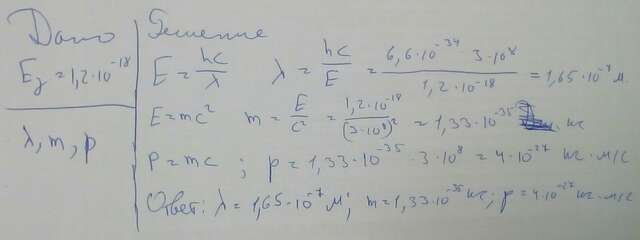 Дано
E₂ = 1,2·10⁻¹⁸
λ, m, p
Решение
E = hc/λ λ = hc/E = 6,6·10⁻³⁴ 3·10⁸/1,2·10⁻¹⁸ = 1,65·10⁻⁷ м.
E = mc² m = E/c² = 1,2·10⁻¹⁸/(3·10⁸)² = 1,33·10⁻³⁵ кг
P = mc ; p = 1,33·10⁻³⁵ · 3·10⁸ = 4·10⁻²⁷ кг·м/с
Ответ: λ = 1,65·10⁻⁷ м; m = 1,33·10⁻³⁵ кг; p = 4·10⁻²⁷ кг·м/с